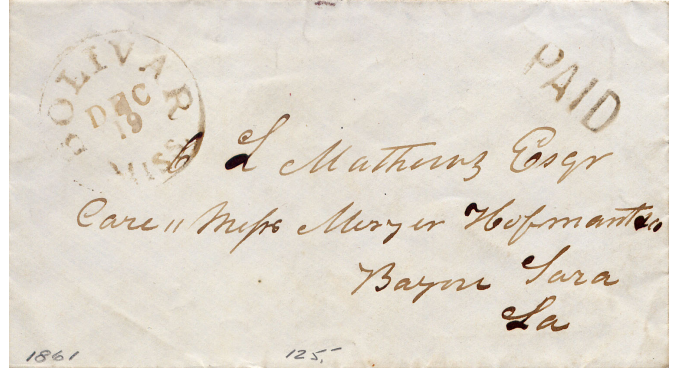 BOLIVAR
DEC
19
MISS
PAID
C L Mathews Esqr
Care " Mess Meyer Hofman & Co
Bayou Sara
La
1861
125.-